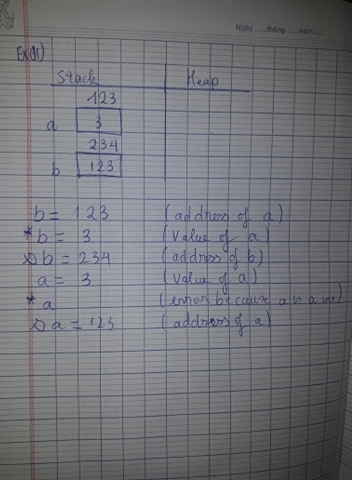 Ngày ......tháng ......năm......
Ex(1)
Stack Heap
123
a 3
234
b 123
b = 123 (address of a)
*b = 3 (value of a)
&b = 234 (address of b)
a = 3 (value of a)
*a (error because a is a
&a = 123 (address of a)